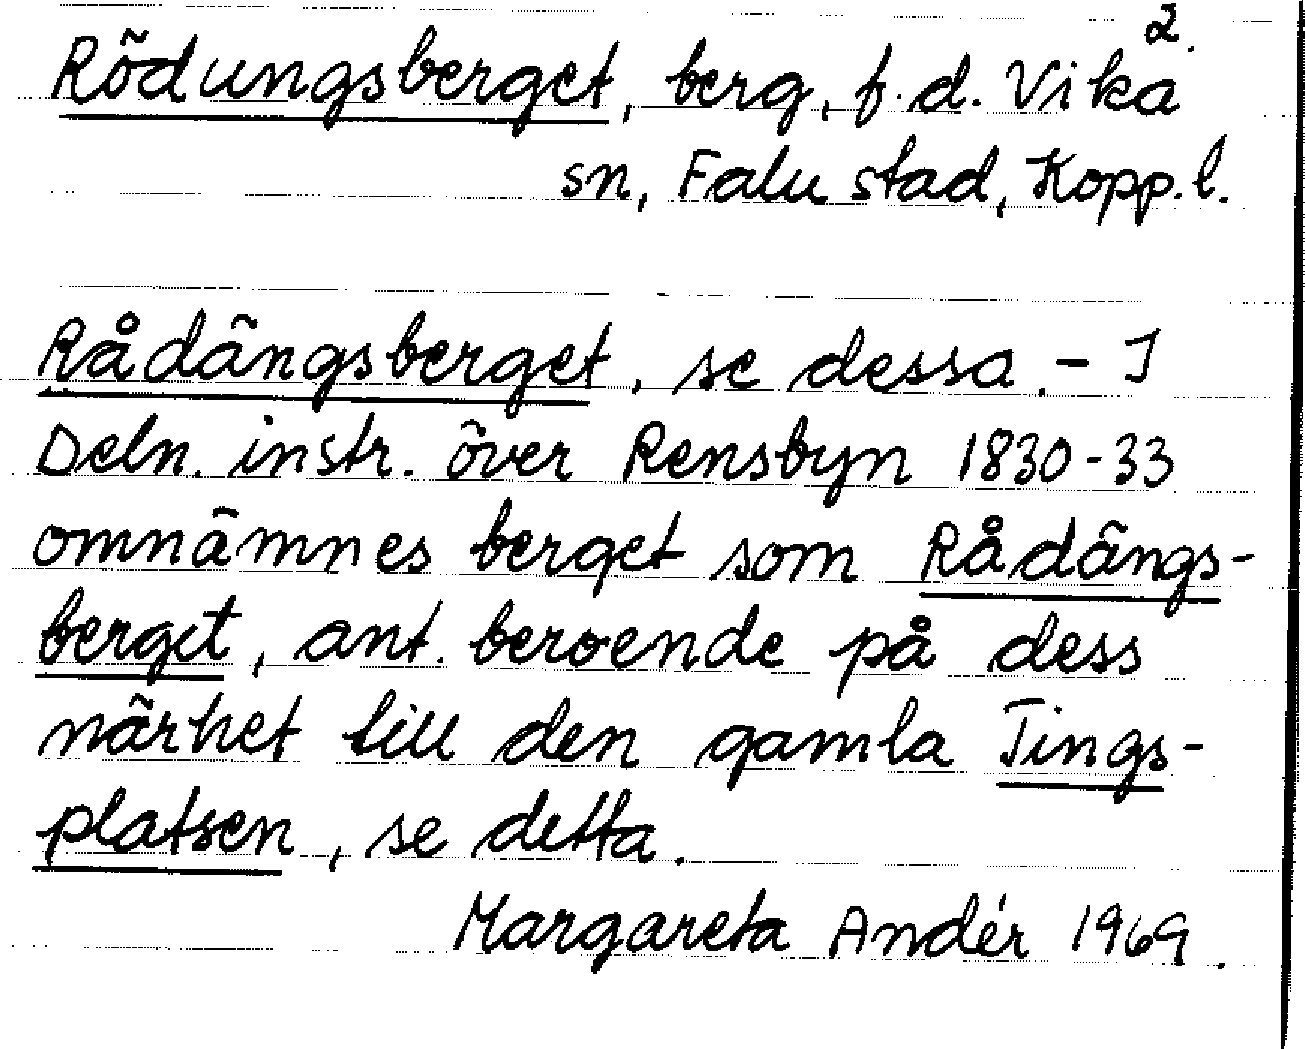 2.
Rödungsberget, berg, f.d. Vika
sn, Falu stad, Kopp.l.
Rådängsberget, se dessa. - I
Deln. instr. över Rensbyn 1830-33
omnämnes berget som Rådängs-
berget, ant. beroende på dess
närhet till den gamla Tings-
platsen, se detta.
Margareta Andér 1969.